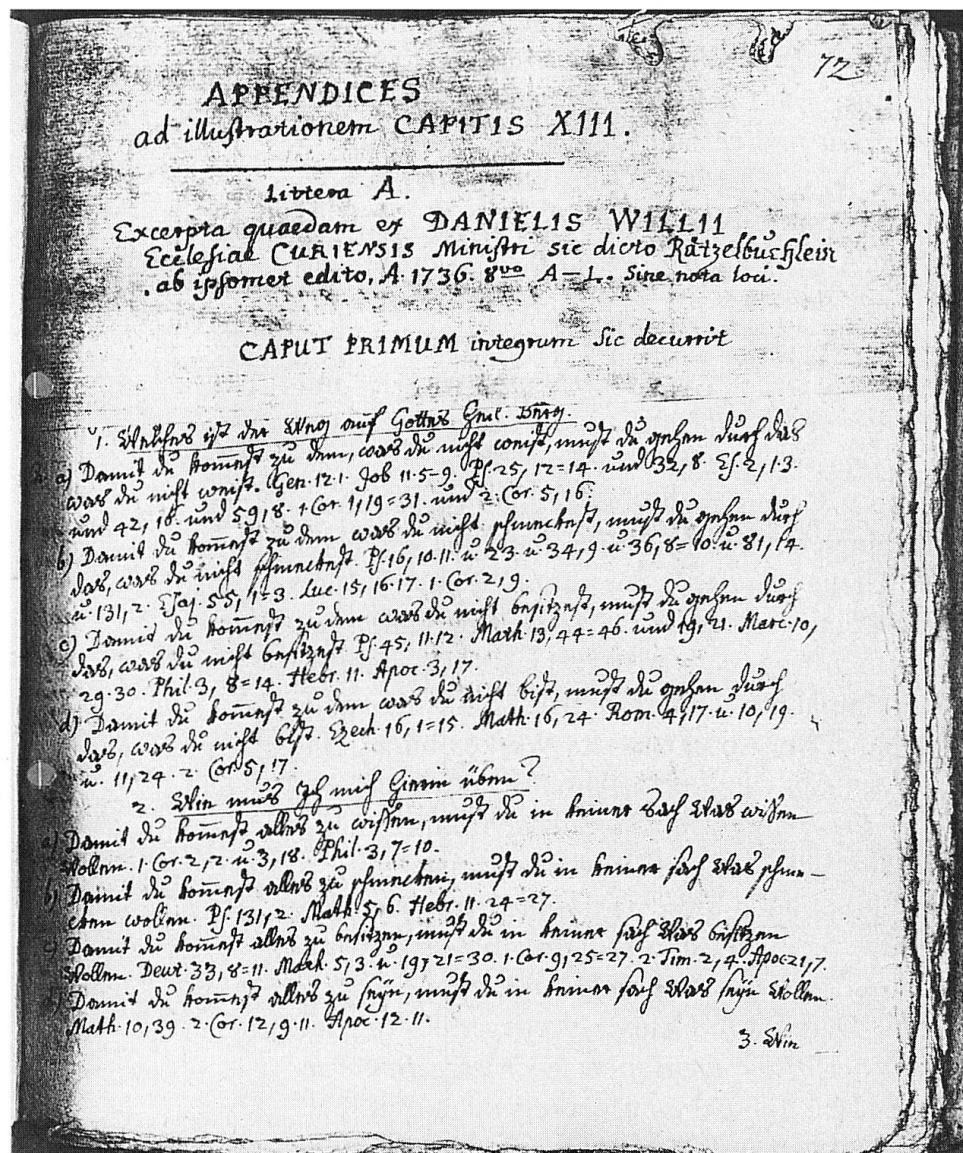 72
APPENDICES
ad illustrationem CAPITIS XIII.
Littera A.
Excerpta quaedam ex DANIELIS WILLII
Ecclesiae CURIENSIS Ministri sic dicto Rätzelbüchlein
ab ipsomet edito, A. 1736. 8vo A–L. Sine nota loci.
CAPUT PRIMUM integrum sic decurrit
1. Welches ist der Weg auf Gottes Heil. Berg.
a) Damit du kom̄est zu dem, was du nicht weist, must du gehen durch das
was du nicht weist. Gen. 12.1. Job 11.5-9. Ps. 25, 12=14. und 32, 8. Es. 2, 1.3.
und 42, 16. und 59, 8. 1. Cor. 1, 19=31. und 2. Cor. 5, 16.
b) Damit du kom̄est zu dem was du nicht schmeckest, must du gehen durch
das, was du nicht schmeckest. Ps. 16, 10.11. u. 23. u. 34, 9. u. 36, 8=10. u. 81, 14.
u. 131, 2. Esaj. 55, 1=3. Luc. 15, 16.17. 1. Cor. 2, 9.
c) Damit du kom̄est zu dem was du nicht besitzest, must du gehen durch
das, was du nicht besitzest. Ps. 45, 11.12. Math. 13, 44=46. und 19, 21. Marc. 10,
29.30. Phil. 3, 8=14. Hebr. 11. Apoc. 3, 17.
d) Damit du kom̄est zu dem was du nicht bist, must du gehen durch
das, was du nicht bist. Ezech. 16, 1=15. Math. 16, 24. Rom. 4, 17. u. 10, 19.
u. 11, 24. 2. Cor. 5, 17.
2. Wie mus Ich mich hierin üben?
a) Damit du kom̄est alles zu wissen, must du in keiner Sach Was wissen
Wollen. 1. Cor. 2, 2. u. 3, 18. Phil. 3, 7=10.
b) Damit du kom̄est alles zu schmecken, must du in keiner sach Was schme-
cken wollen. Ps. 131, 2. Math. 5, 6. Hebr. 11. 24=27.
c) Damit du kom̄est alles zu besitzen, must du in keiner sach Was besitzen
Wollen. Deut. 33, 8=11. Math. 5, 3. u. 19, 21=30. 1. Cor. 9, 25=27. 2. Tim. 2, 4. Apoc. 21, 7.
d) Damit du kom̄est alles zu seyn, must du in keiner sach Was seyn Wollen.
Math. 10, 39. 2. Cor. 12, 9.11. Apoc. 12.11.
3. Win